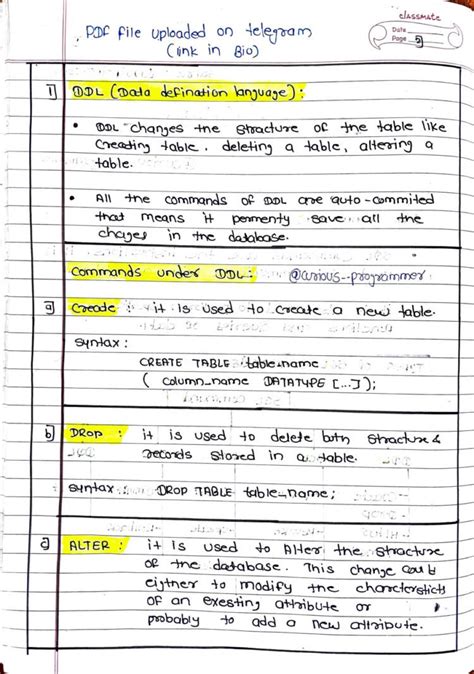 classmate
Date
Page 5
PDF file uploaded on telegram
(link in Bio)
1] DDL (Data defination language) :
• DDL changes the structure of the table like
Creating table, deleting a table, altering a
table.
• All the commands of DDL are auto-commited
that means it permenty save all the
chages in the database.
Commands under DDL : @curious_.programmer
a] Create : it is used to create a new table.
syntax :
CREATE TABLE table_name
( column_name DATATYPE [...]);
b] DROP : it is used to delete both structure &
records stored in a table.
syntax : DROP TABLE table_name;
c] ALTER : it is used to Alter the structure
of the database. This change could
eigtner to modify the charctersticts
of an exesting attribute or
probably to add a new attribute.